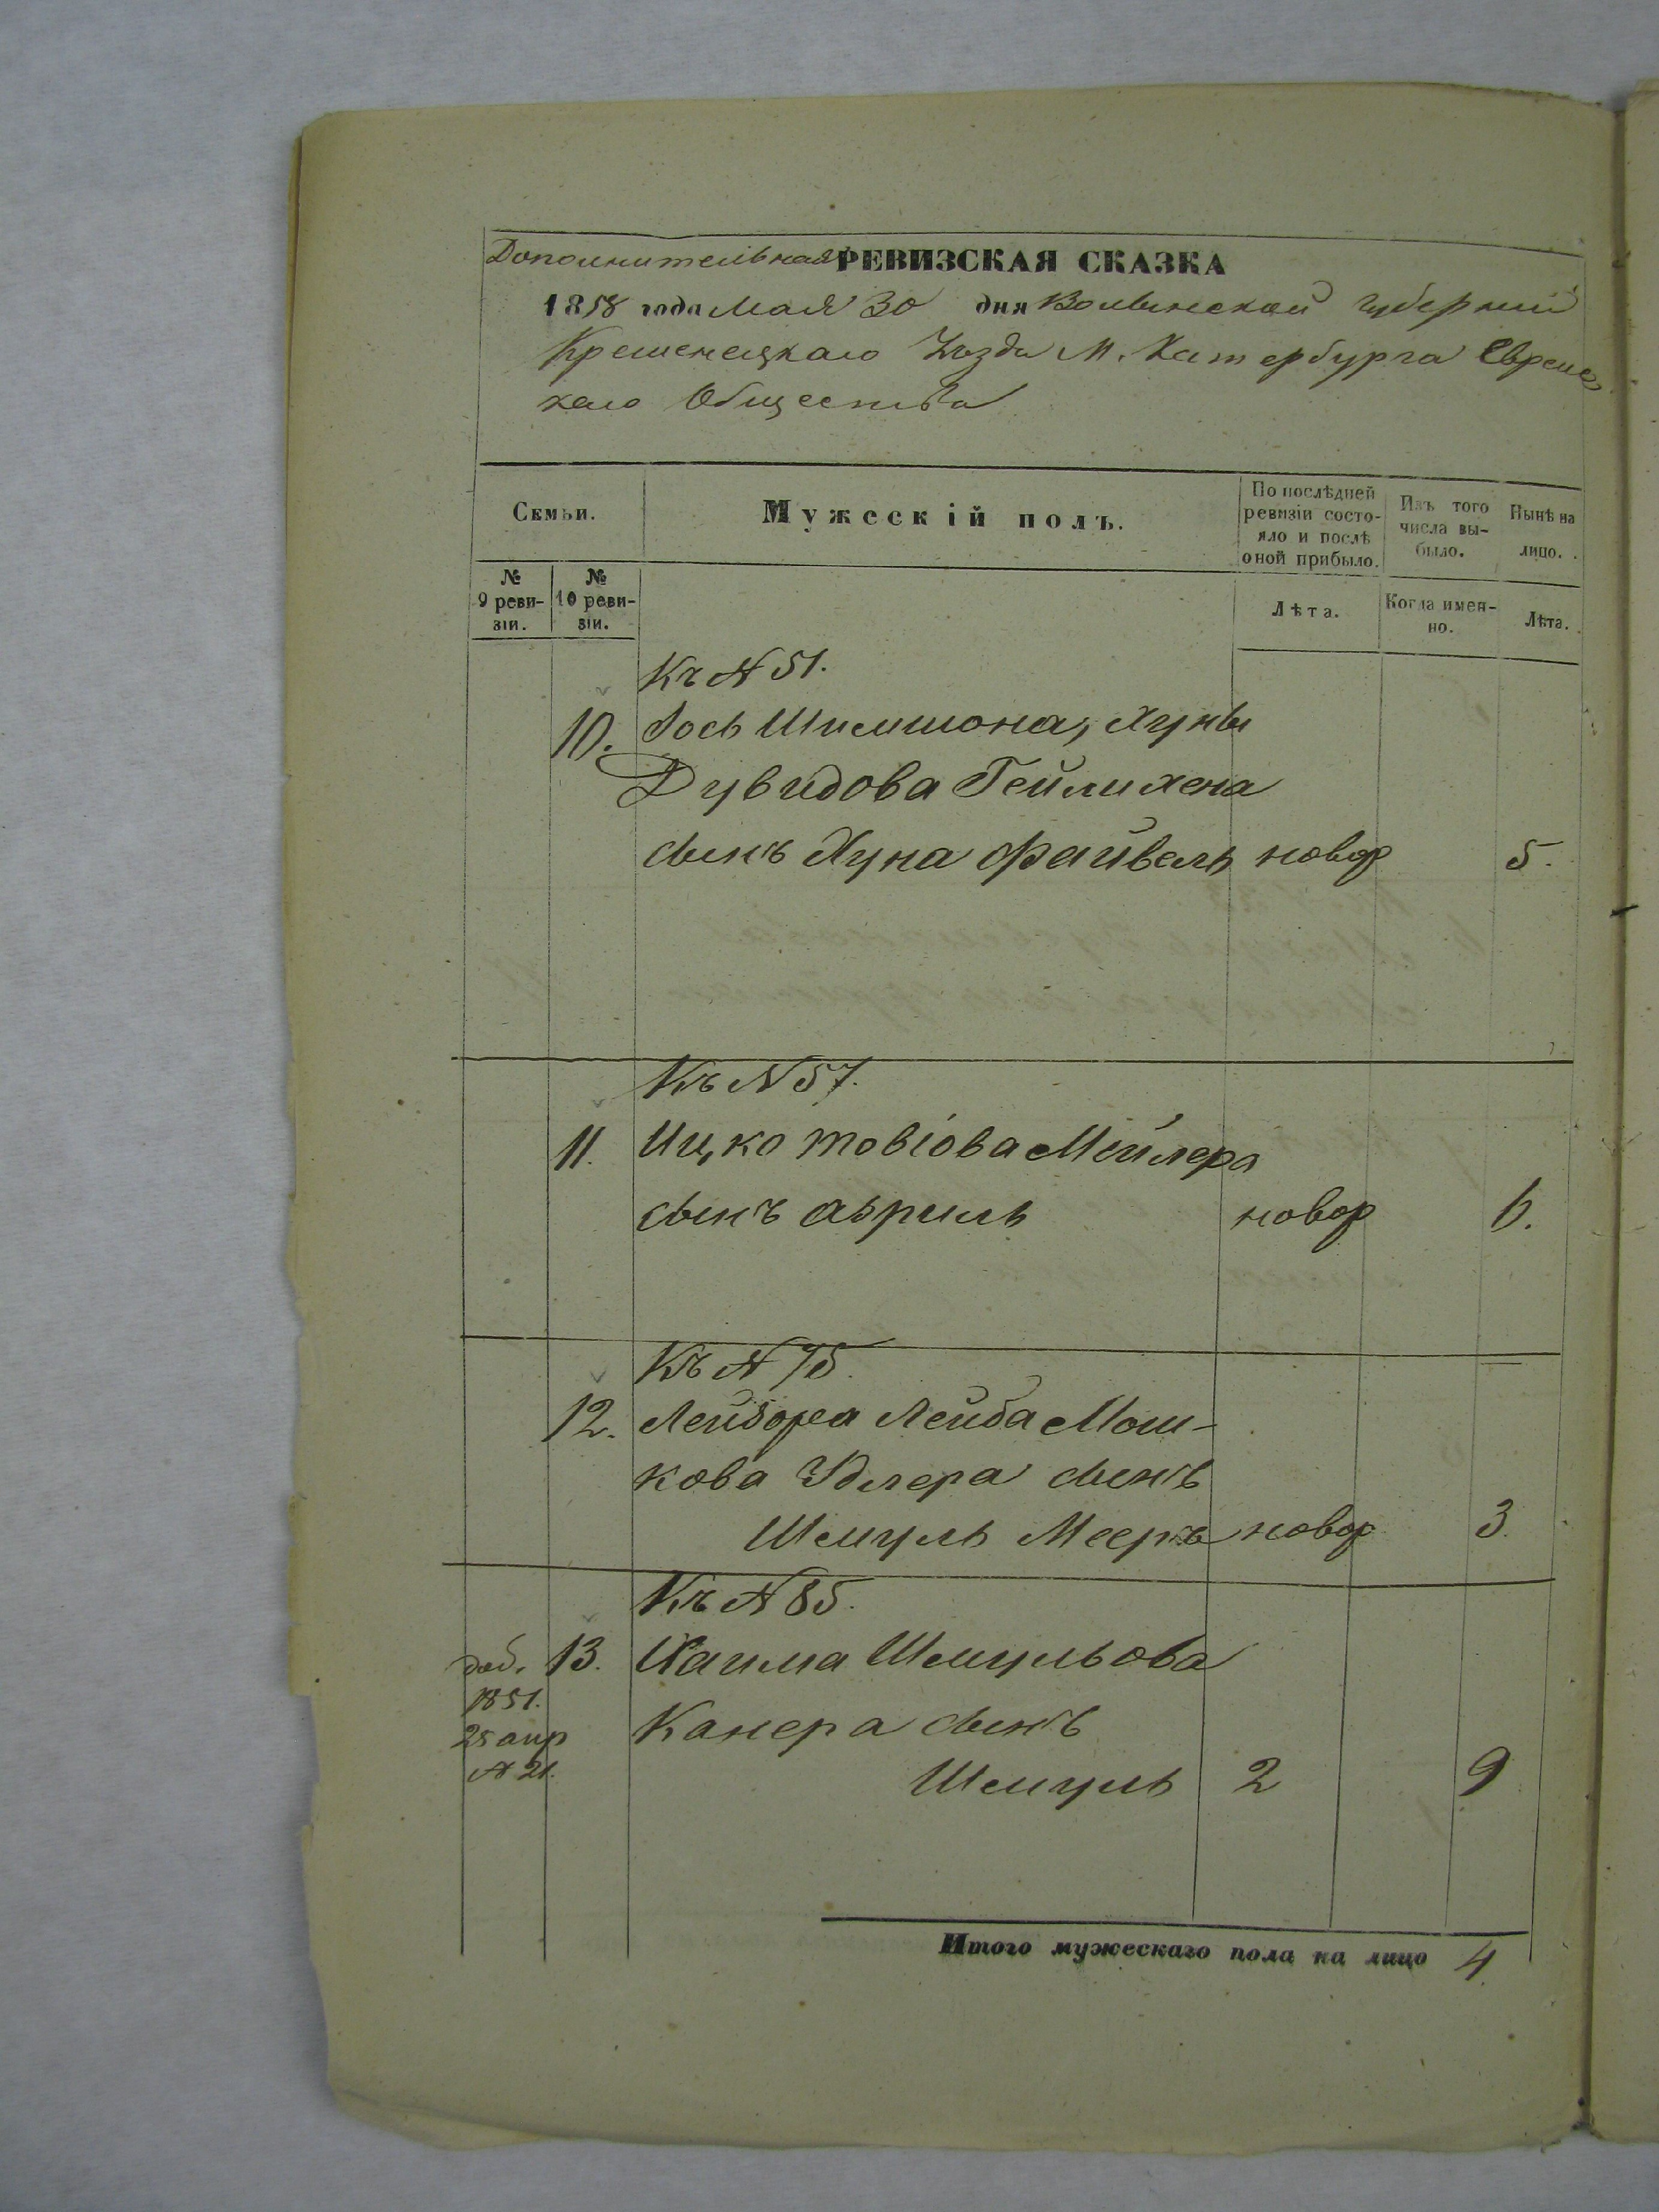 Дополнительная РЕВИЗСКАЯ СКАЗКА
1858 года Мая 30 дня Волынской губернии
Кременецкаго Уѣзда М. Катербурга Еврейс
каго Общества
Семьи.
Мужескій полъ.
По послѣдней ревизіи состо-
яло и послѣ оной прибыло.
Изъ того числа вы-
было.
Нынѣ на лицо.
№ 9 реви-
зіи.
№ 10 реви-
зіи.
Лѣта.
Когда имен-
но.
Лѣта.
Къ № 51.
10. Іось Шимшона, Хуны
Дувидова Гейлихена
сынъ Хуна Файвель новор 5.
Къ № 57.
11. Ицко Товіова Мейлера
сынъ Аврумъ новор 6.
Къ № 75.
12. Лейба Мош-
кова Удлера сынъ
Шмуль Мееръ новор 3.
Къ № 85.
доб. 13. Хаима Шмульова
1851.
25 апр Канера сынъ
№ 21.
Шмуль 2 9
Итого мужескаго пола на лицо 4.